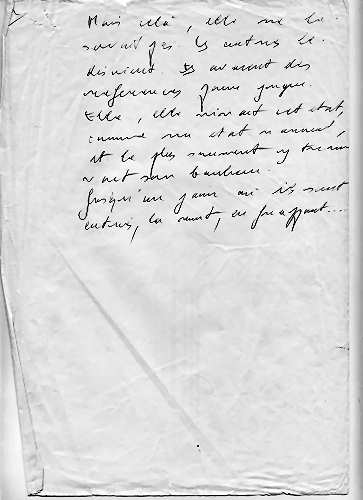 Mais cela, elle ne le
savait pas les autres le
disaient. Ils avaient des
références pour juger.
Elle, elle vivait cet état,
comme un état normal,
et le plus souvent y trou
vait son bonheur.
Jusqu'au jour où ils sont
entrés, la nuit, en frappant...